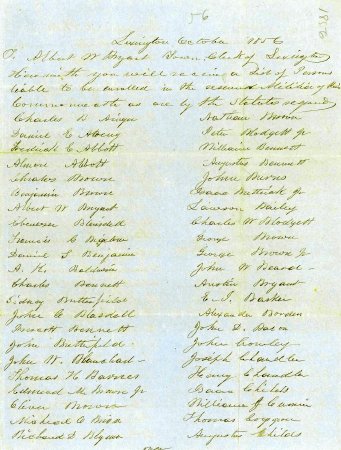 56
Lexington October 1856
To Albert W Bryant Town Clerk of Lexington
Herewith you will receive a List of Persons
Liable to be enrolled in the reserved Militia of this
Commonwealth as are by the Statutes required
Charles D
Daniel C
Frederick C Abbott
Almon Abbott
Charles Brown
Benjamin Brown
Albert W Bryant
Ebenezer Blaisdell
Francis C Bigelow
Daniel S Benjamin
A. H. Baldwin
Charles Bennett
Sidney Butterfield
John C Blasdell
Prescott Bennett
John Buttefild
John W. Blanchard
Thomas H Barnes
Edmund M Brown Jr
Oliver Brown
Michael C
Richard D
Nathan Brown
Peter Blodgett Jr
William Bennett
Augustus Bennett
John Burns
Isaac Buttrick Jr
Lawson Bailey
Charles W Blodgett
George Brown
George Brown Jr
John W Beard
Austin Bryant
E. T. Barker
Alexander Borden
John D. Bacon
John Cowley
Joseph Chandler
Henry Chandler
Isaac Childs
William J Currin
Thomas
Augustus Childs
over